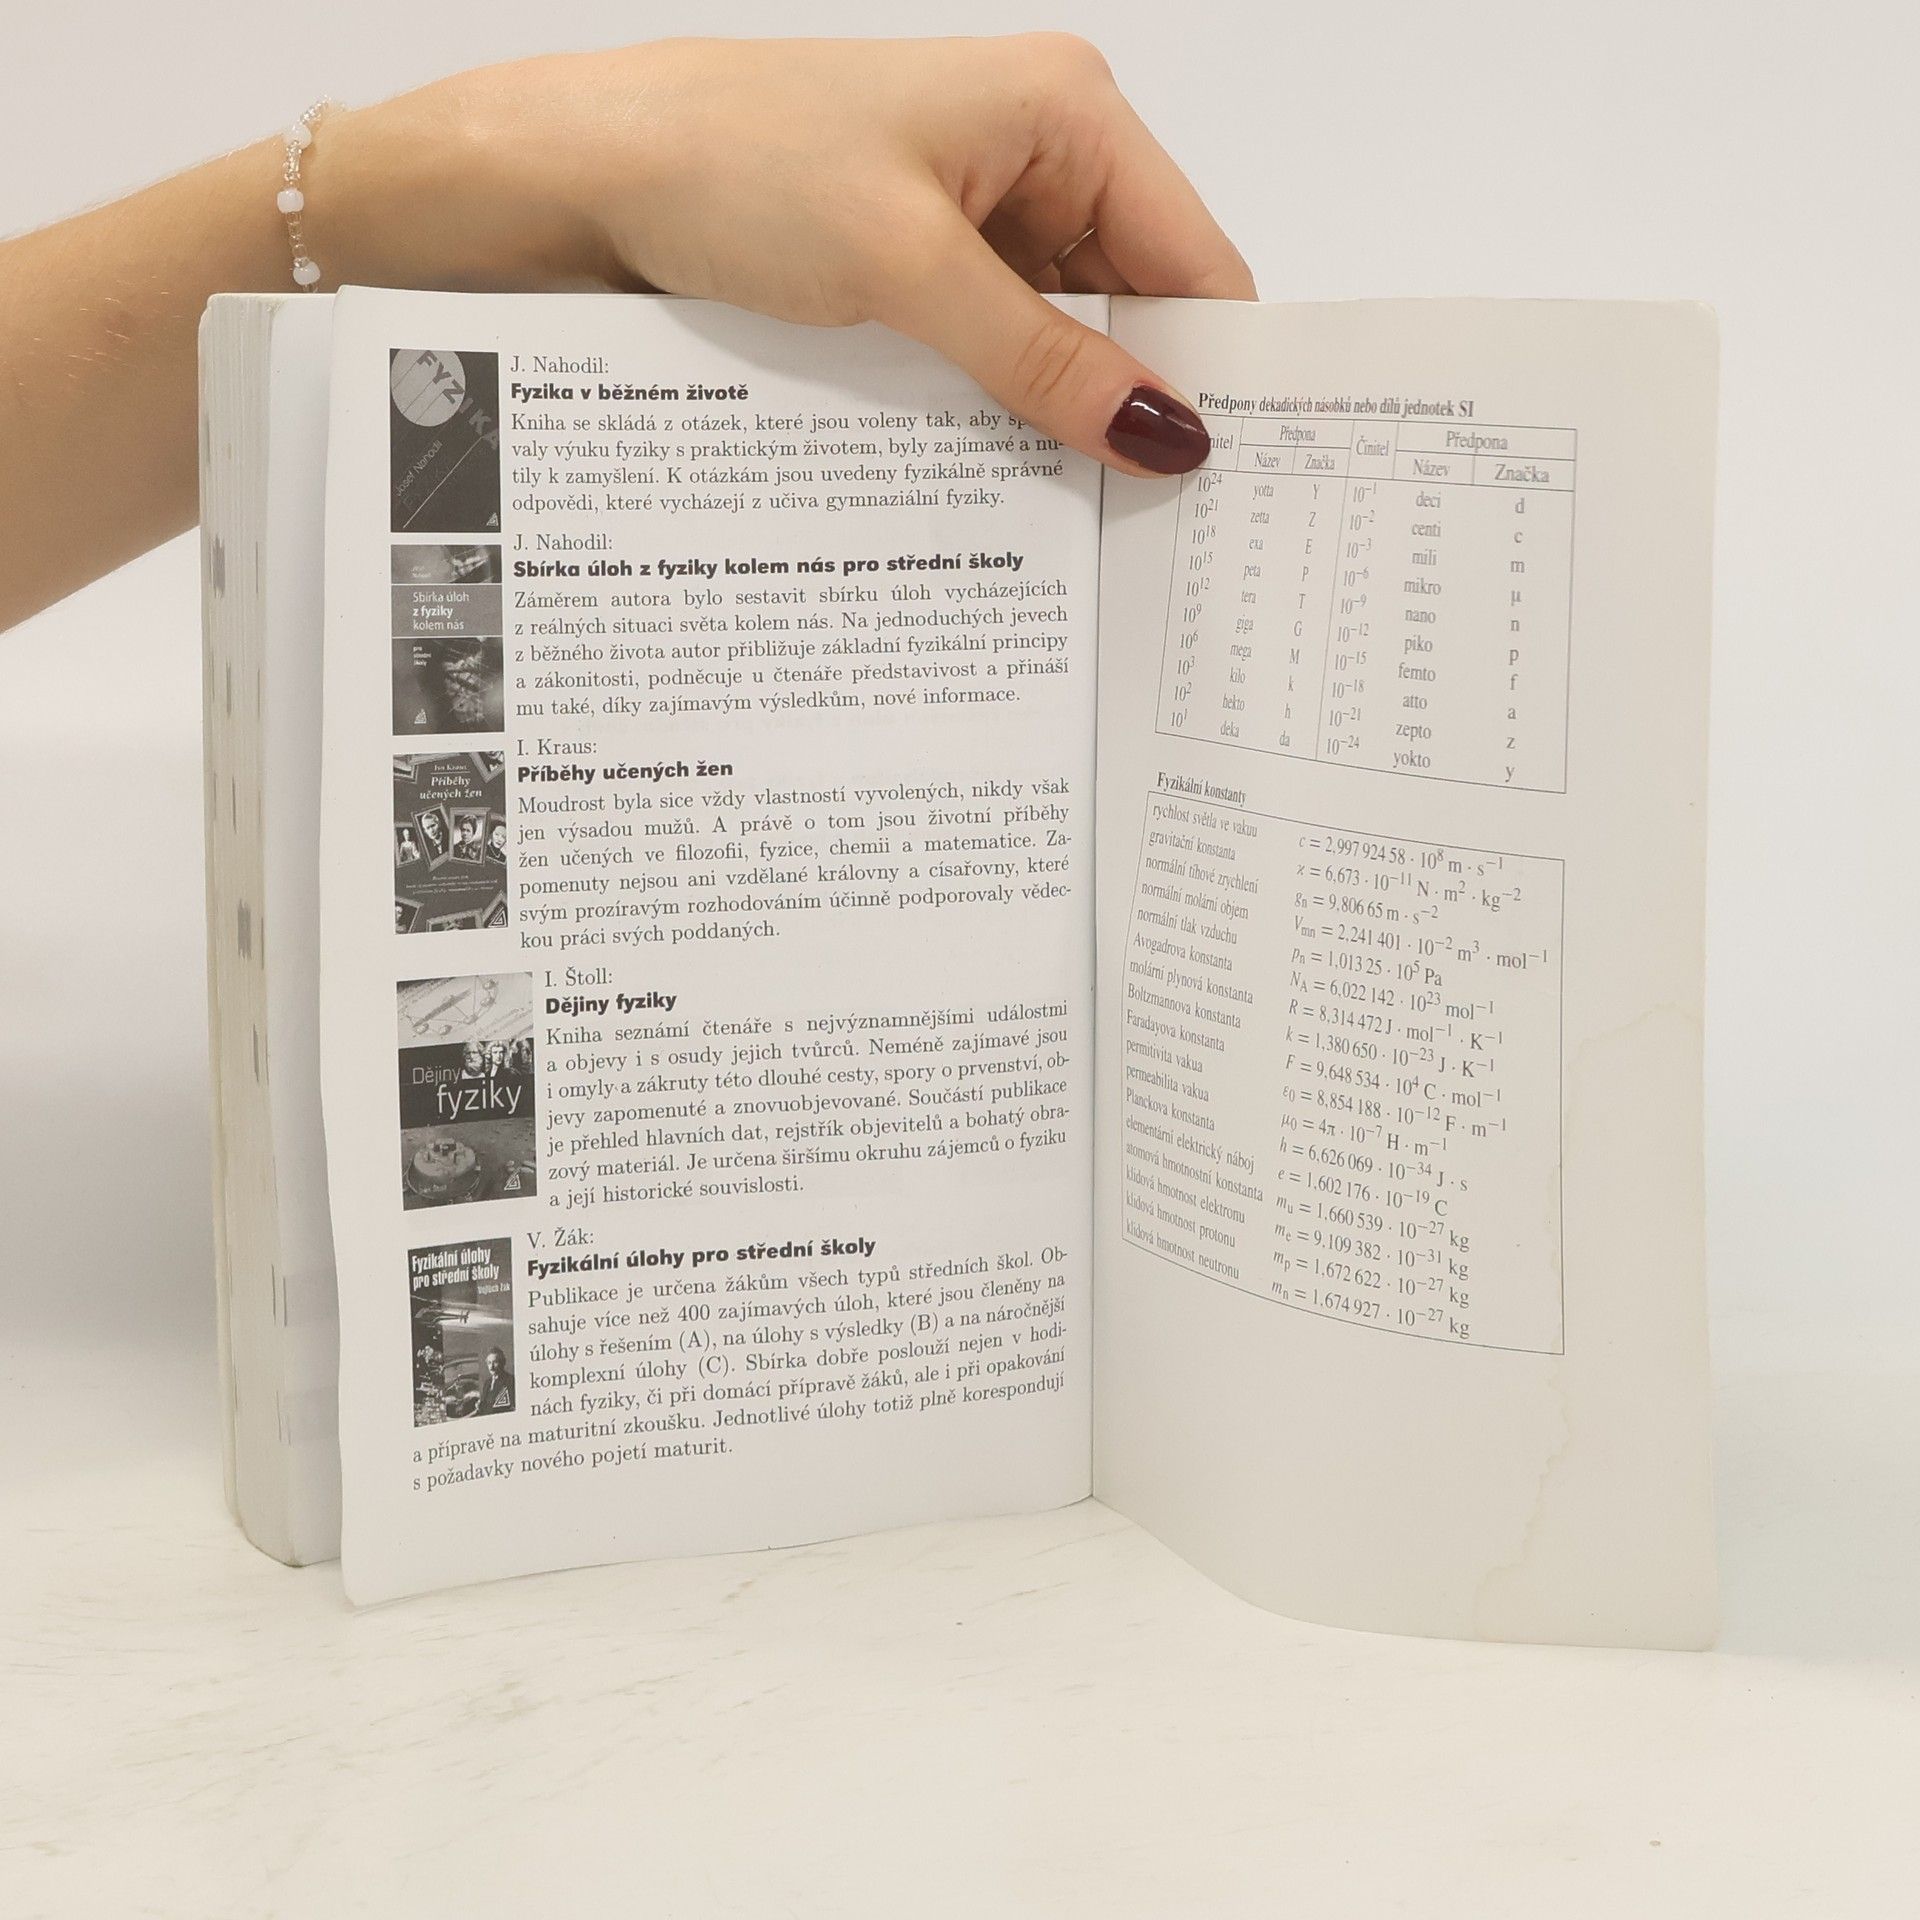 J. Nahodil:
Fyzika v běžném životě
Kniha se skládá z otázek, které jsou voleny tak, aby
valy výuku fyziky s praktickým životem, byly zajímavé a nu-
tily k zamyšlení. K otázkám jsou uvedeny fyzikálně správné
odpovědi, které vycházejí z učiva gymnaziální fyziky.
FYZIKA
Josef Nahodil
J. Nahodil:
Sbírka úloh z fyziky kolem nás pro střední školy
Záměrem autora bylo sestavit sbírku úloh vycházejících
z reálných situaci světa kolem nás. Na jednoduchých jevech
z běžného života autor přibližuje základní fyzikální principy
a zákonitosti, podněcuje u čtenáře představivost a přináší
mu také, díky zajímavým výsledkům, nové informace.
Sbírka úloh
z fyziky
kolem nás
pro
střední
školy
I. Kraus:
Příběhy učených žen
Moudrost byla sice vždy vlastností vyvolených, nikdy však
jen výsadou mužů. A právě o tom jsou životní příběhy
žen učených ve filozofii, fyzice, chemii a matematice. Za-
pomenuty nejsou ani vzdělané královny a císařovny, které
svým prozíravým rozhodováním účinně podporovaly vědec-
kou práci svých poddaných.
Ivo Kraus
Příběhy
učených žen
I. Štoll:
Dějiny fyziky
Kniha seznámí čtenáře s nejvýznamnějšími událostmi
a objevy i s osudy jejich tvůrců. Neméně zajímavé jsou
i omyly a zákruty této dlouhé cesty, spory o prvenství, ob-
jevy zapomenuté a znovuobjevované. Součástí publikace
je přehled hlavních dat, rejstřík objevitelů a bohatý obra-
zový materiál. Je určena širšímu okruhu zájemců o fyziku
a její historické souvislosti.
Dějiny
fyziky
V. Žák:
Fyzikální úlohy pro střední školy
Publikace je určena žákům všech typů středních škol. Ob-
sahuje více než 400 zajímavých úloh, které jsou členěny na
úlohy s řešením (A), na úlohy s výsledky (B) a na náročnější
komplexní úlohy (C). Sbírka dobře poslouží nejen v hodi-
nách fyziky, či při domácí přípravě žáků, ale i při opakování
a přípravě na maturitní zkoušku. Jednotlivé úlohy totiž plně korespondují
s požadavky nového pojetí maturit.
Fyzikální úlohy
pro střední školy
Vojtěch Žák
Předpony dekadických násobků nebo dílů jednotek SI
Předpona Činitel Předpona
Název Značka Název Značka
10²⁴ yotta Y 10⁻¹ deci d
10²¹ zetta Z 10⁻² centi c
10¹⁸ exa E 10⁻³ mili m
10¹⁵ peta P 10⁻⁶ mikro μ
10¹² tera T 10⁻⁹ nano n
10⁹ giga G 10⁻¹² piko p
10⁶ mega M 10⁻¹⁵ femto f
10³ kilo k 10⁻¹⁸ atto a
10² hekto h 10⁻²¹ zepto z
10¹ deka da 10⁻²⁴ yokto y
Fyzikální konstanty
rychlost světla ve vakuu c = 2,997 924 58 · 10⁸ m · s⁻¹
gravitační konstanta ϰ = 6,673 · 10⁻¹¹ N · m² · kg⁻²
normální tíhové zrychlení gₙ = 9,806 65 m · s⁻²
normální molární objem Vmn = 2,241 401 · 10⁻² m³ · mol⁻¹
normální tlak vzduchu pₙ = 1,013 25 · 10⁵ Pa
Avogadrova konstanta NA = 6,022 142 · 10²³ mol⁻¹
molární plynová konstanta R = 8,314 472 J · mol⁻¹ · K⁻¹
Boltzmannova konstanta k = 1,380 650 · 10⁻²³ J · K⁻¹
Faradayova konstanta F = 9,648 534 · 10⁴ C · mol⁻¹
permitivita vakua ε₀ = 8,854 188 · 10⁻¹² F · m⁻¹
permeabilita vakua μ₀ = 4π · 10⁻⁷ H · m⁻¹
Planckova konstanta h = 6,626 069 · 10⁻³⁴ J · s
elementární elektrický náboj e = 1,602 176 · 10⁻¹⁹ C
atomová hmotnostní konstanta mᵤ = 1,660 539 · 10⁻²⁷ kg
klidová hmotnost elektronu mₑ = 9,109 382 · 10⁻³¹ kg
klidová hmotnost protonu mₚ = 1,672 622 · 10⁻²⁷ kg
klidová hmotnost neutronu mₙ = 1,674 927 · 10⁻²⁷ kg